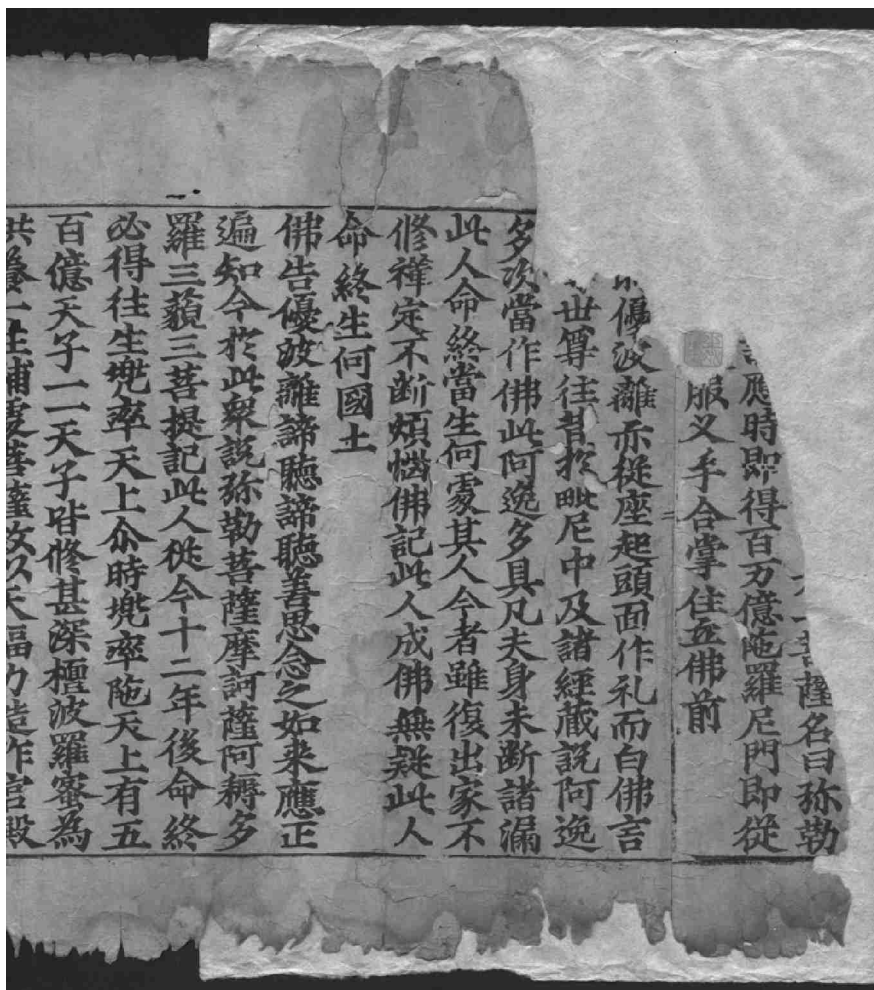 一菩薩名曰弥勒
應時即得百万億陁羅尼門即從
服叉手合掌住立佛前
優波離亦從座起頭面作礼而白佛言
世尊往昔於毗尼中及諸經藏說阿逸
多次當作佛此阿逸多具凡夫身未斷諸漏
此人命終當生何處其人今者雖復出家不
修禪定不断煩惱佛記此人成佛無疑此人
命終生何國土
佛告優波離諦聽諦聽善思念之如来應正
遍知今於此衆說弥勒菩薩摩訶薩阿耨多
羅三藐三菩提記此人從今十二年後命終
必得往生兜率天上尒時兜率陁天上有五
百億天子一一天子皆修甚深檀波羅蜜為
供養一生補處菩薩故以天福力造作宮殿